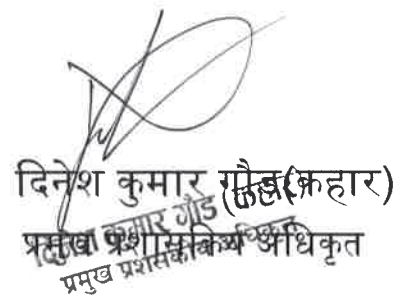 दिनेश कुमार गौड(कहार)
प्रमुख प्रशासकिय अधिकृत
कुमार गौड (कहार)
प्रमुख प्रशासकीय अधिकृत